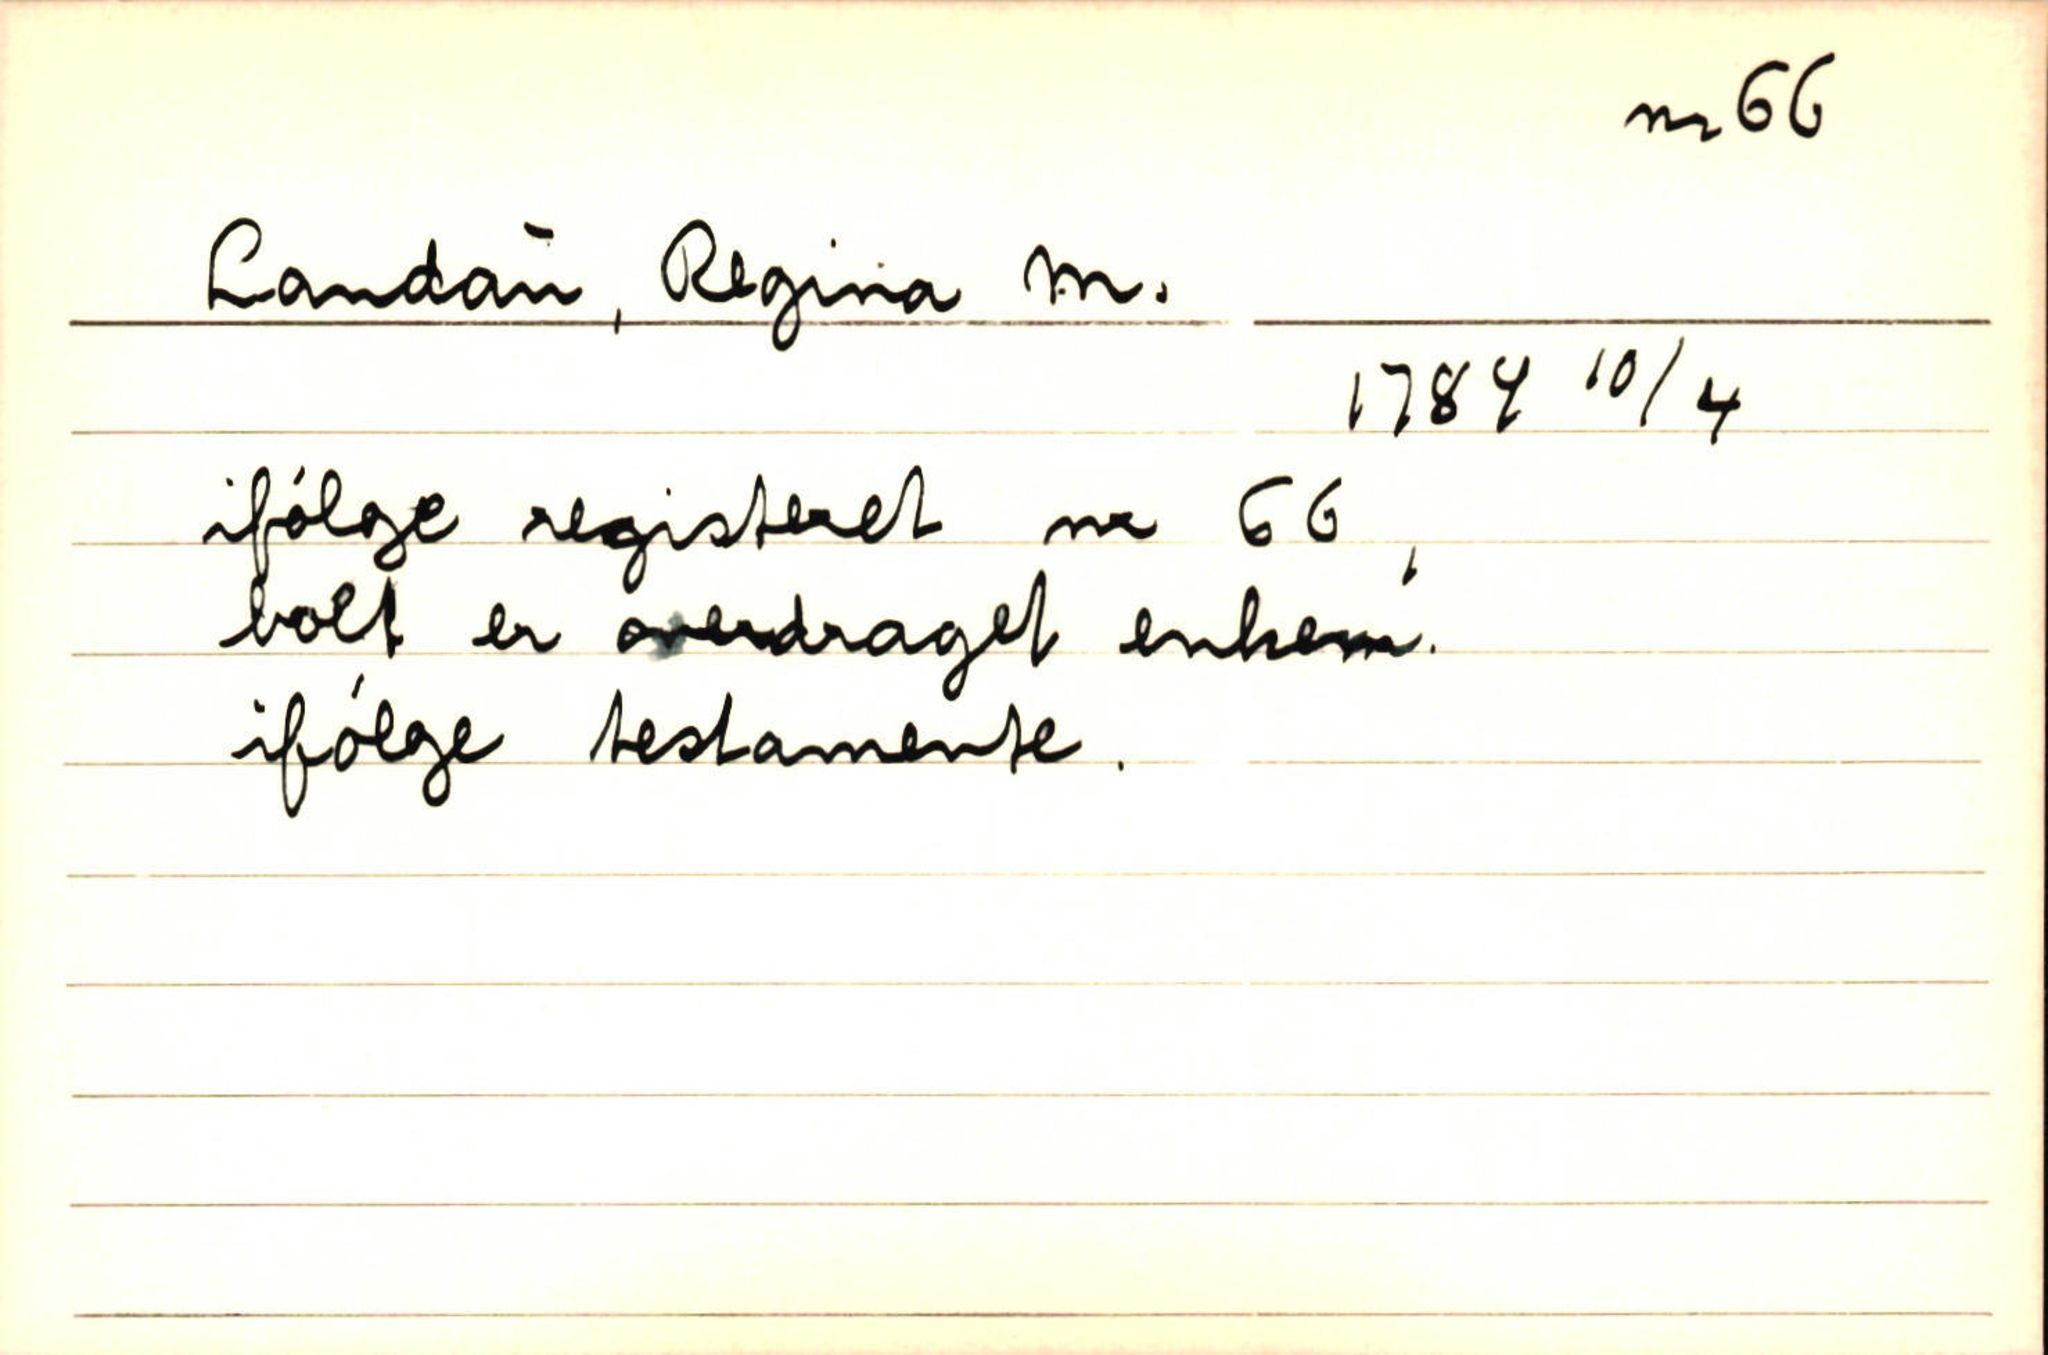 nr 66
Landaū, Regina M.
1784 10/4
ifólge registeret nr 66,
boet er overdraget enkem.
ifólge testamente.